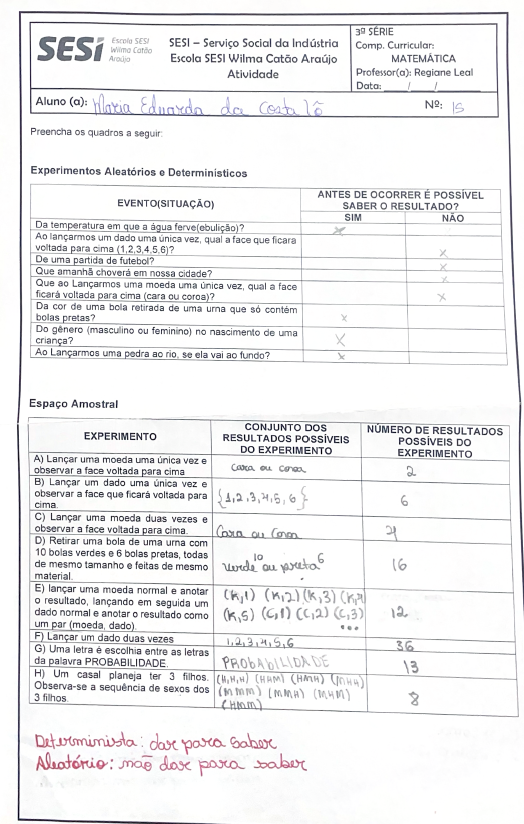 SESI
Escola SESI
Wilma Catão
Araújo
SESI – Serviço Social da Indústria
Escola SESI Wilma Catão Araújo
Atividade
3ª SÉRIE
Comp. Curricular:
MATEMÁTICA
Professor(a): Regiane Leal
Data: ____/____/____
Aluno (a): Maria Eduarda da Costa Lô
Nº: 15
Preencha os quadros a seguir:
Experimentos Aleatórios e Determinísticos
EVENTO(SITUAÇÃO)
ANTES DE OCORRER É POSSÍVEL
SABER O RESULTADO?
SIM NÃO
Da temperatura em que a água ferve(ebulição)? x
Ao lançarmos um dado uma única vez, qual a face que ficara
voltada para cima (1,2,3,4,5,6)? x
De uma partida de futebol? x
Que amanhã choverá em nossa cidade? x
Que ao Lançarmos uma moeda uma única vez, qual a face
ficará voltada para cima (cara ou coroa)? x
Da cor de uma bola retirada de uma urna que só contém
bolas pretas? x
Do gênero (masculino ou feminino) no nascimento de uma
criança? x
Ao Lançarmos uma pedra ao rio, se ela vai ao fundo? x
Espaço Amostral
EXPERIMENTO
CONJUNTO DOS
RESULTADOS POSSÍVEIS
DO EXPERIMENTO
NÚMERO DE RESULTADOS
POSSÍVEIS DO
EXPERIMENTO
A) Lançar uma moeda uma única vez e
observar a face voltada para cima
cara ou coroa
2
B) Lançar um dado uma única vez e
observar a face que ficará voltada para
cima.
{1,2,3,4,5,6}
6
C) Lançar uma moeda duas vezes e
observar a face voltada para cima.
Cara ou Coroa
4
D) Retirar uma bola de uma urna com
10 bolas verdes e 6 bolas pretas, todas
de mesmo tamanho e feitas de mesmo
material.
10 6
verde ou preta
16
E) lançar uma moeda normal e anotar
o resultado, lançando em seguida um
dado normal e anotar o resultado como
um par (moeda, dado).
(K,1) (K,2) (K,3) (K,4)
(K,5) (C,1) (C,2) (C,3)
...
12
F) Lançar um dado duas vezes
1,2,3,4,5,6
36
G) Uma letra é escolhia entre as letras
da palavra PROBABILIDADE.
PRObAbILIDADE
13
H) Um casal planeja ter 3 filhos.
Observa-se a sequência de sexos dos
3 filhos.
(H,H,H) (HHM) (HMH) (MHH)
(MMM) (MMH) (MHM)
(HMM)
8
Determinista: dar para saber
Aleatório: não dar para saber